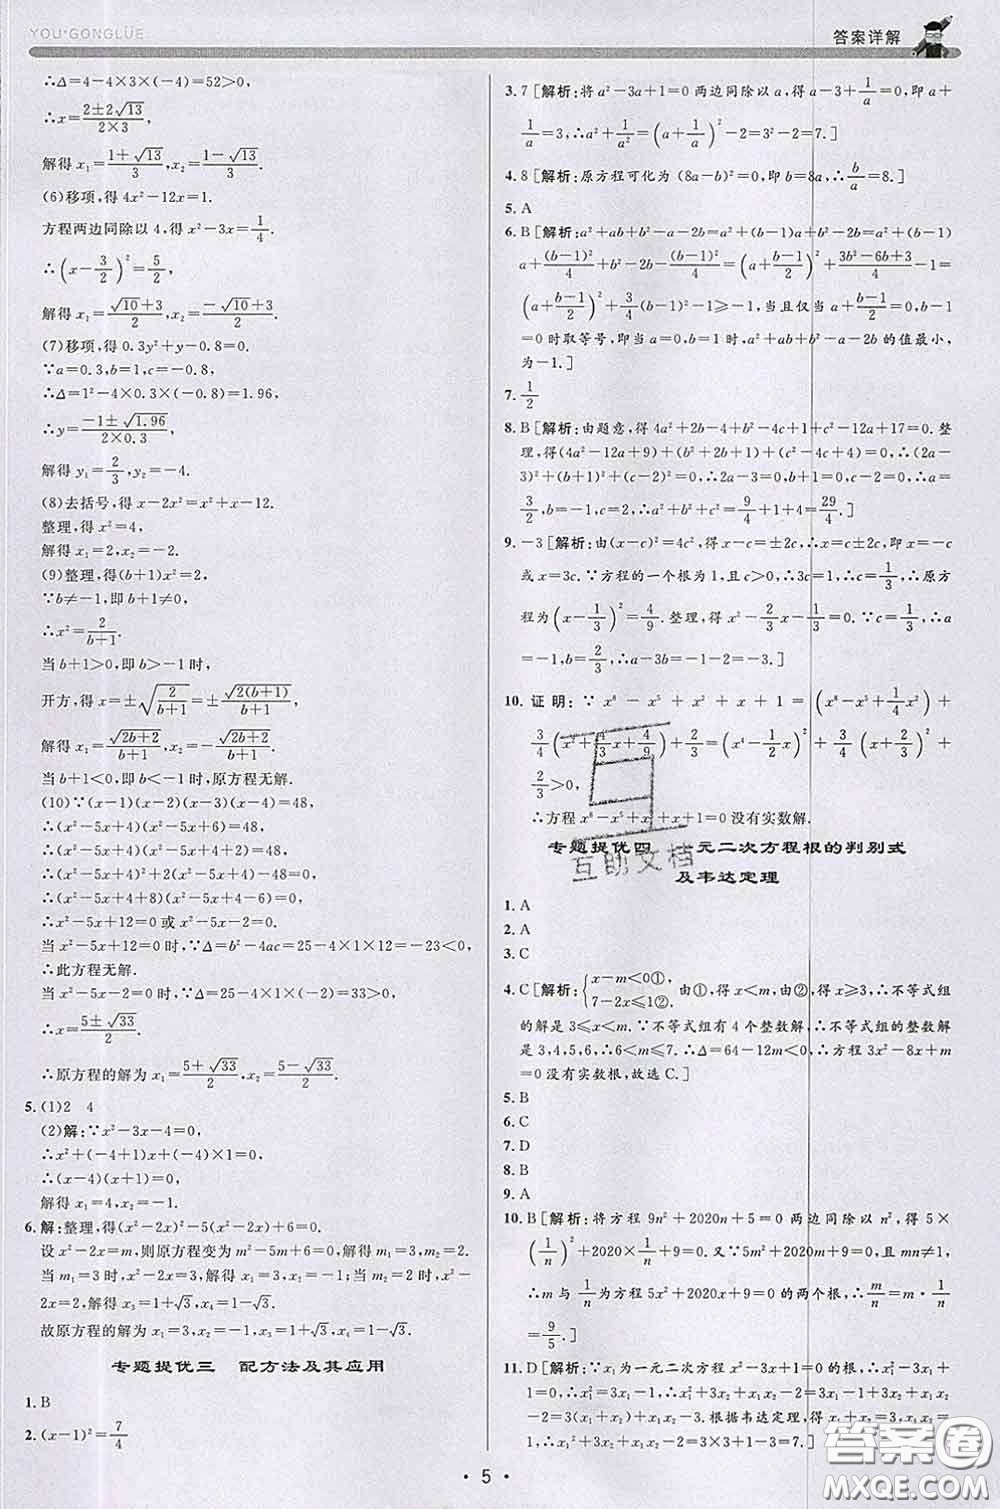 YOU·GONGLÜE
答案详解
∴Δ=4-4×3×(-4)=52>0,
∴x=(2±2√13)/(2×3),
解得 x₁=(1+√13)/3,x₂=(1-√13)/3.
(6)移项,得 4x²-12x=1.
方程两边同除以 4,得 x²-3x=1/4.
∴(x-3/2)²=5/2,
解得 x₁=(√10+3)/2,x₂=(-√10+3)/2.
(7)移项,得 0.3y²+y-0.8=0.
∵a=0.3,b=1,c=-0.8,
∴Δ=1²-4×0.3×(-0.8)=1.96,
∴y=(-1±√1.96)/(2×0.3),
解得 y₁=2/3,y₂=-4.
(8)去括号,得 x-2x²=x²+x-12.
整理,得 x²=4,
解得 x₁=2,x₂=-2.
(9)整理,得(b+1)x²=2,
∵b≠-1,即 b+1≠0,
∴x²=2/(b+1).
当 b+1>0,即 b>-1 时,
开方,得 x=±√(2/(b+1))=±√(2(b+1))/(b+1),
解得 x₁=√(2b+2)/(b+1),x₂=-√(2b+2)/(b+1).
当 b+1<0,即 b<-1 时,原方程无解.
(10)∵(x-1)(x-2)(x-3)(x-4)=48,
∴(x²-5x+4)(x²-5x+6)=48,
∴(x²-5x+4)²+2(x²-5x+4)-48=0,
∴(x²-5x+4+8)(x²-5x+4-6)=0,
∴x²-5x+12=0 或 x²-5x-2=0.
当 x²-5x+12=0 时,∵Δ=b²-4ac=25-4×1×12=-23<0,
∴此方程无解.
当 x²-5x-2=0 时,∵Δ=25-4×1×(-2)=33>0,
∴x=(5±√33)/2,
∴原方程的解为 x₁=(5+√33)/2,x₂=(5-√33)/2.
5. (1)2 4
(2)解:∵x²-3x-4=0,
∴x²+(-4+1)x+(-4)×1=0,
∴(x-4)(x+1)=0,
解得 x₁=4,x₂=-1.
6. 解:整理,得(x²-2x)²-5(x²-2x)+6=0.
设 x²-2x=m,则原方程变为 m²-5m+6=0,解得 m₁=3,m₂=2.
当 m₁=3 时,x²-2x=3,解得 x₁=3,x₂=-1;当 m₂=2 时,x²-
2x=2,解得 x₃=1+√3,x₄=1-√3.
故原方程的解为 x₁=3,x₂=-1,x₃=1+√3,x₄=1-√3.
专题提优三 配方法及其应用
1. B
2. (x-1)²=7/4
3. 7 [解析:将 a²-3a+1=0 两边同除以 a,得 a-3+1/a=0,即 a+
1/a=3,∴a²+1/a²=(a+1/a)²-2=3²-2=7.]
4. 8 [解析:原方程可化为 (8a-b)²=0,即 b=8a,∴b/a=8.]
5. A
6. B [解析:a²+ab+b²-a-2b=a²+(b-1)a+b²-2b=a²+(b-1)
a+(b-1)²/4+b²-2b-(b-1)²/4=(a+(b-1)/2)²+(3b²-6b+3)/4-1=
(a+(b-1)/2)²+3/4(b-1)²-1≥-1,当且仅当 a+(b-1)/2=0,b-1
=0 时取等号,即当 a=0,b=1 时,a²+ab+b²-a-2b 的值最小,
为-1.]
7. 1/2
8. B [解析:由题意,得 4a²+2b-4+b²-4c+1+c²-12a+17=0.整
理,得(4a²-12a+9)+(b²+2b+1)+(c²-4c+4)=0,∴(2a-
3)²+(b+1)²+(c-2)²=0,∴2a-3=0,b+1=0,c-2=0,∴a=
3/2,b=-1,c=2,∴a²+b²+c²=9/4+1+4=29/4.]
9. -3 [解析:由(x-c)²=4c²,得 x-c=±2c,∴x=c±2c,即 x=-c
或 x=3c.∵方程的一个根为 1,且 c>0,∴3c=1,∴c=1/3,∴原方
程为(x-1/3)²=4/9.整理,得 x²-2/3x-1/3=0.∵c=1/3,∴a=
-1,b=2/3,∴a-3b=-1-2=-3.]
10. 证明:∵x⁸-x⁵+x²+x+1=(x⁸-x⁵+1/4x²)+
3/4(x²+4/3x+4/9)+2/3=(x⁴-1/2x)²+3/4(x+2/3)²+
2/3>0,
∴方程 x⁸-x⁵+x²+x+1=0 没有实数解.
专题提优四 一元二次方程根的判别式
及韦达定理
1. A
2. A
3. C
4. C [解析:{x-m<0①,7-2x≤1②.由①,得 x<m,由②,得 x≥3,∴不等式组
的解是 3≤x<m.∵不等式组有 4 个整数解,∴不等式组的整数解
是 3,4,5,6,∴6<m≤7.∴Δ=64-12m<0,∴方程 3x²-8x+m
=0 没有实数根,故选 C.]
5. B
6. C
7. D
8. B
9. A
10. B [解析:将方程 9n²+2020n+5=0 两边同除以 n²,得 5×
(1/n)²+2020×1/n+9=0.又∵5m²+2020m+9=0,且 mn≠1,
∴m 与 1/n 为方程 5x²+2020x+9=0 的两个根,∴m/n=m·1/n
=9/5.]
11. D [解析:∵x₁为一元二次方程 x²-3x+1=0 的根,∴x₁²-3x₁+
1=0,∴x₁²=3x₁-1,∴x₁³=3x₁²-x₁,根据韦达定理,得
=1,∴x₁²
互助文档
答案圈
MXQE.COM
· 5 ·